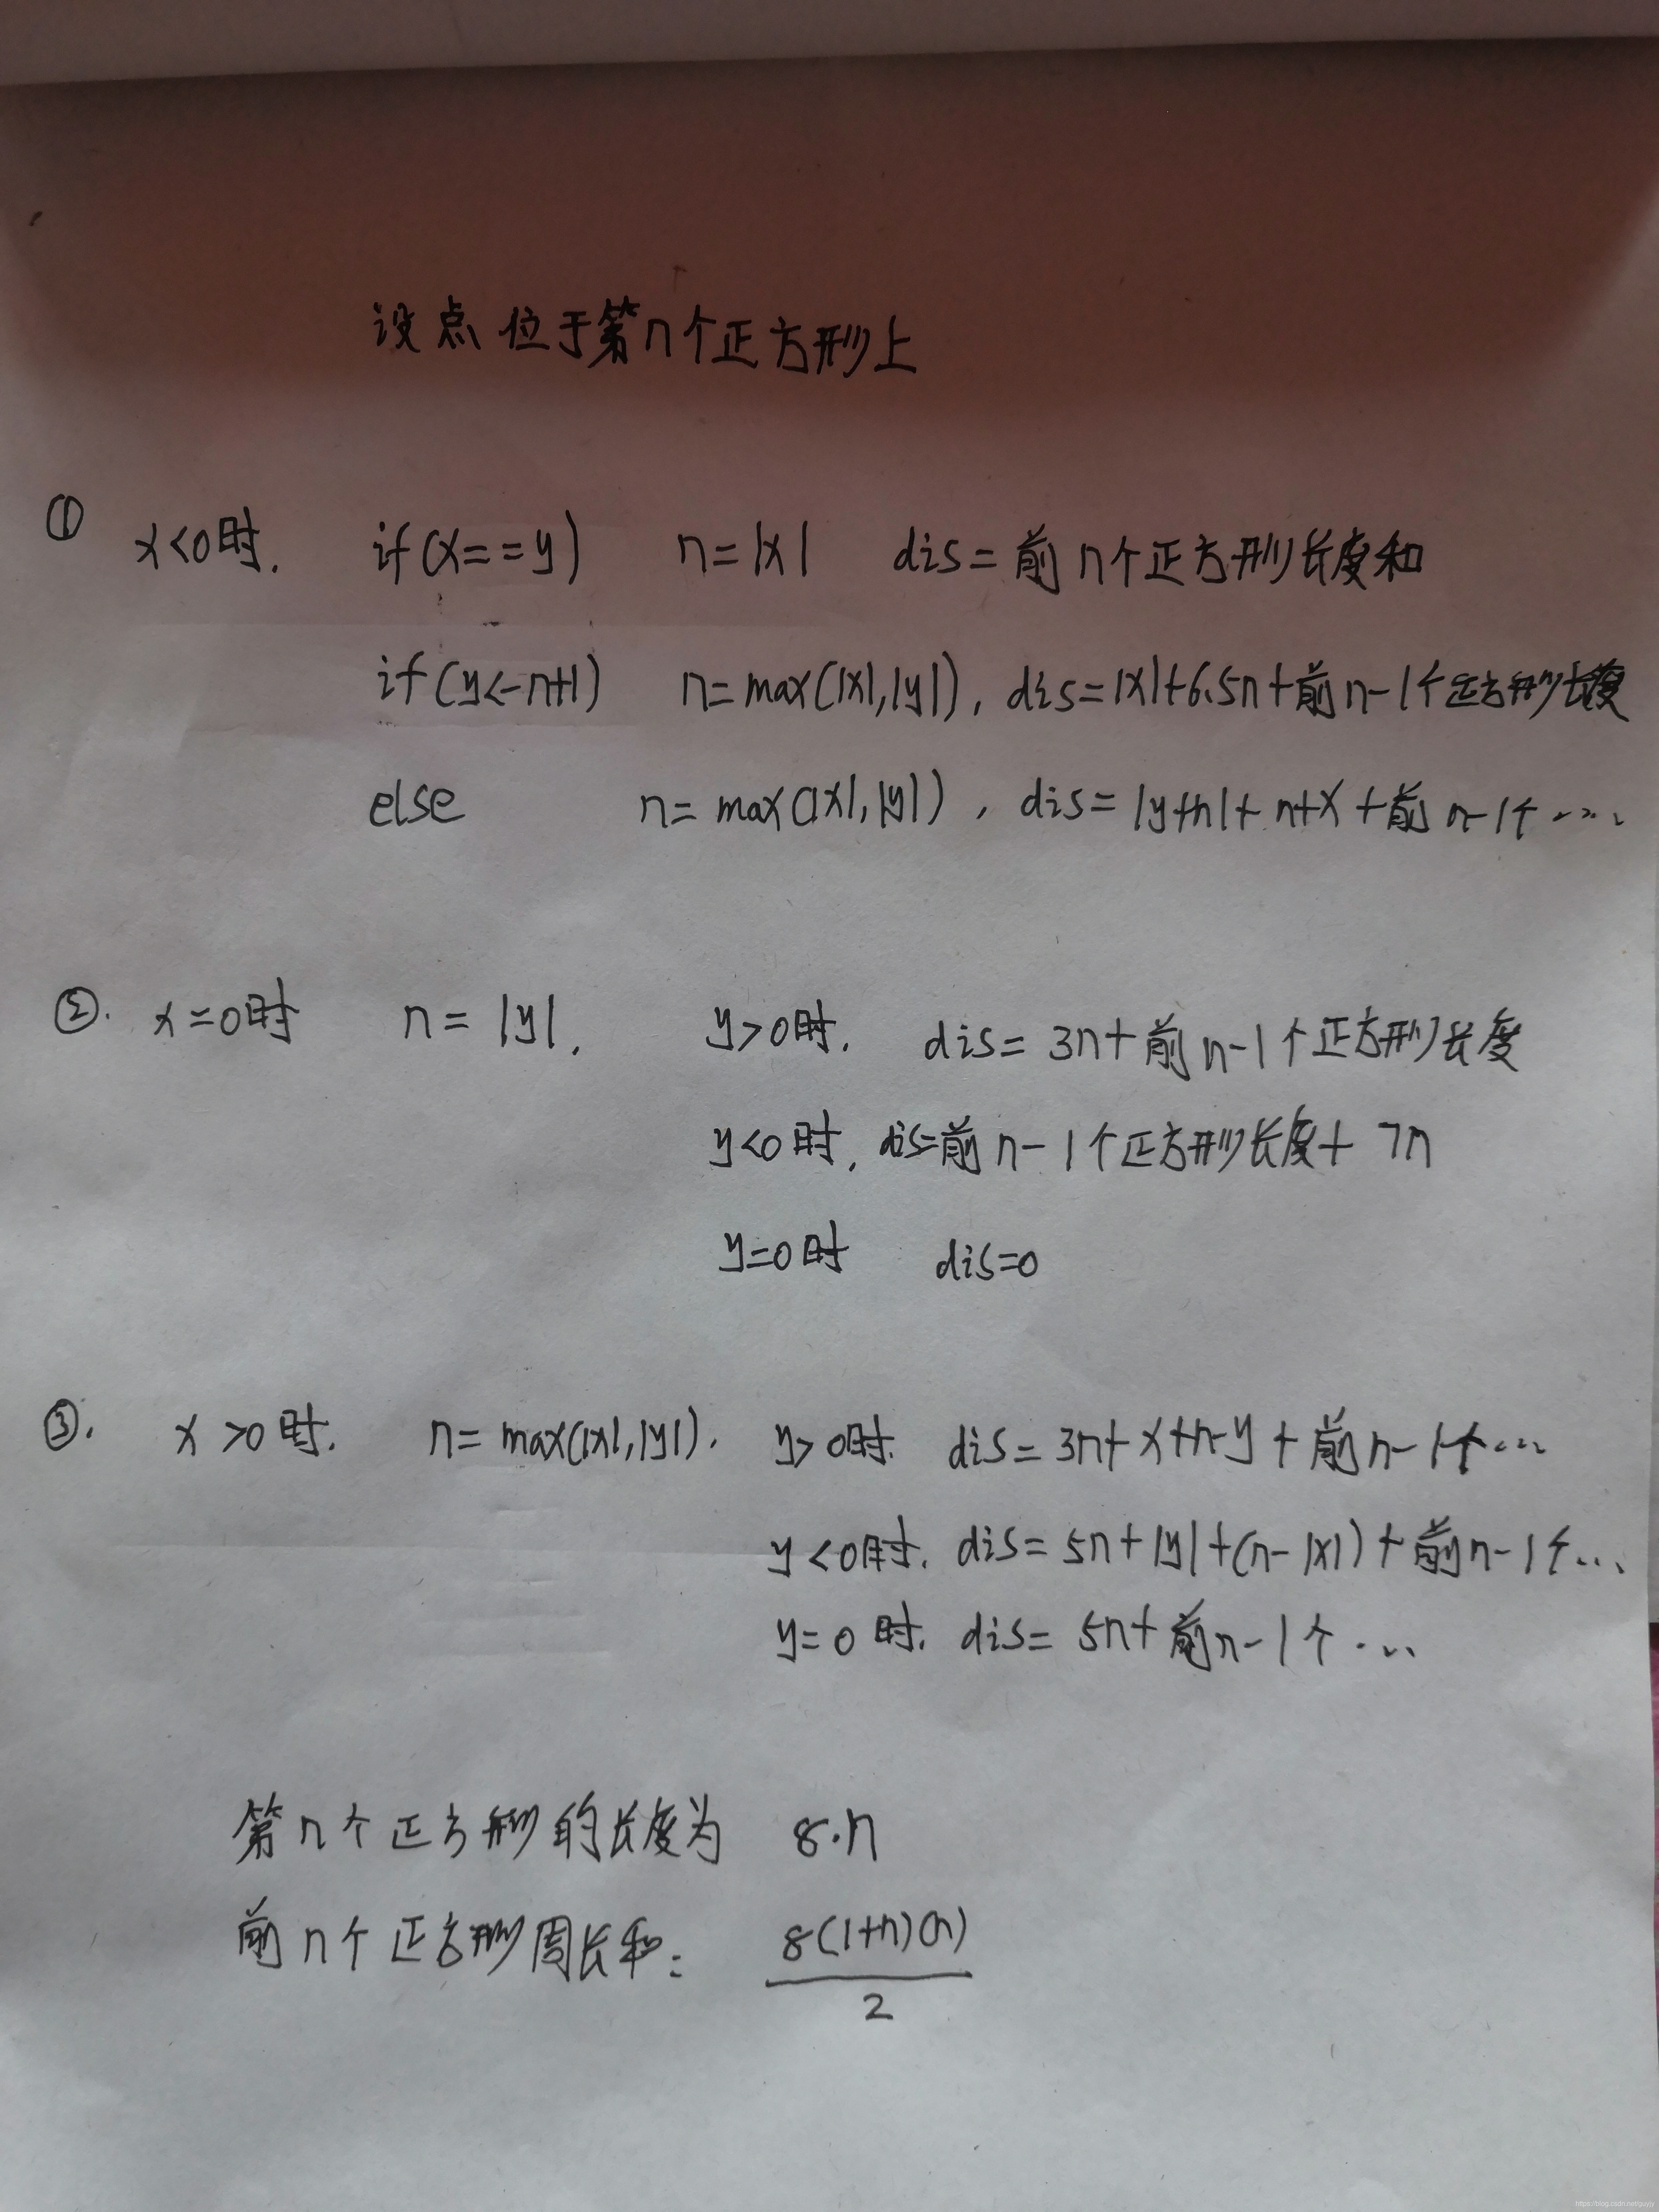 设点位于第n个正方形上
① x<0时. if(x==y) n=|x| dis=前n个正方形长度和
if(y<-n+1) n=max(|x|,|y|), dis=|x|+6.5n+前n-1个正方形长度
else n=max(|x|,|y|), dis=|y+n|+n+x+前n-1个……
②. x=0时 n=|y|. y>0时. dis=3n+前n-1个正方形长度
y<0时, dis=前n-1个正方形长度+7n
y=0时 dis=0
③. x>0时. n=max(|x|,|y|). y>0时. dis=3n+x+n-y+前n-1个……
y<0时. dis=5n+|y|+(n-|x|)+前n-1个…
y=0时. dis=5n+前n-1个…
第n个正方形的长度为 8·n
前n个正方形周长和: 8(1+n)(n)
2
https://blog.csdn.net/guyjy